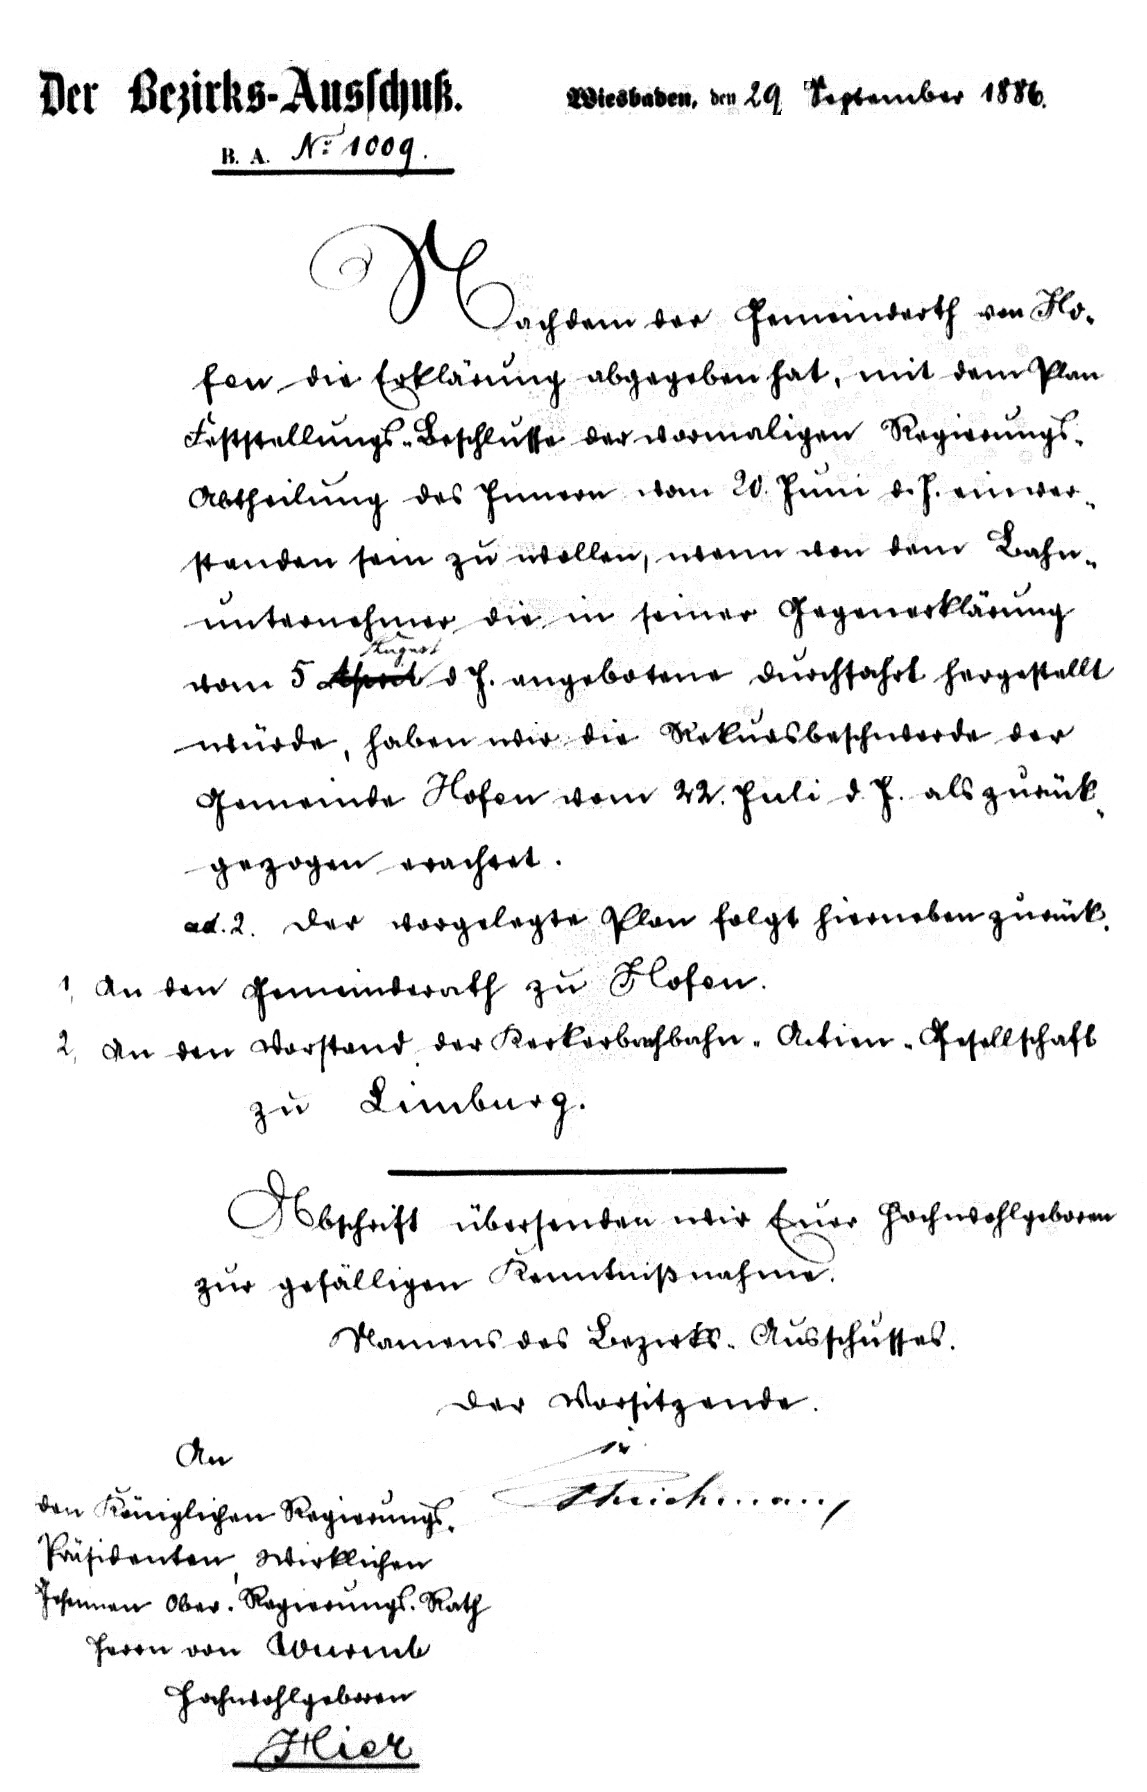 Der Bezirks-Ausschuß.
Wiesbaden, den 29 September 1886.
B. A. No 1009.
Nachdem der Gemeinderth von Ho-
fen die Erklärung abgegeben hat, mit dem Plan
Feststellungs-Beschlusse der vormaligen Regierungs-
Abtheilung des Innern vom 20. Juni d. J. einver-
standen sein zu wollen, wenn von dem Bahn-
unternehmer die in seiner Gegenerklärung
August
vom 5 April d J. angebotene Durchfahrt hergestellt
würde, haben wir die Rekursbeschwerde der
Gemeinde Hofen vom 22. Juli d. J. als zurück-
gezogen erachtet.
ad. 2. Der vorgelegte Plan folgt hierneben zurück.
1, An den Gemeinderath zu Hofen.
2, An den Vorstand der Kerkerbachbahn-Actien-Gesellschaft
zu Limburg.
Abschrift übersenden wir Euer Hochwohlgeboren
zur gefälligen Kenntnißnahme.
Namens des Bezirks-Ausschusses.
Der Vorsitzende.
An
den Königlichen Regierungs-
Präsidenten, Wirklichen
Geheimen Ober-Regierungs-Rath
Herrn von Wurmb
Hochwohlgeboren
Hier